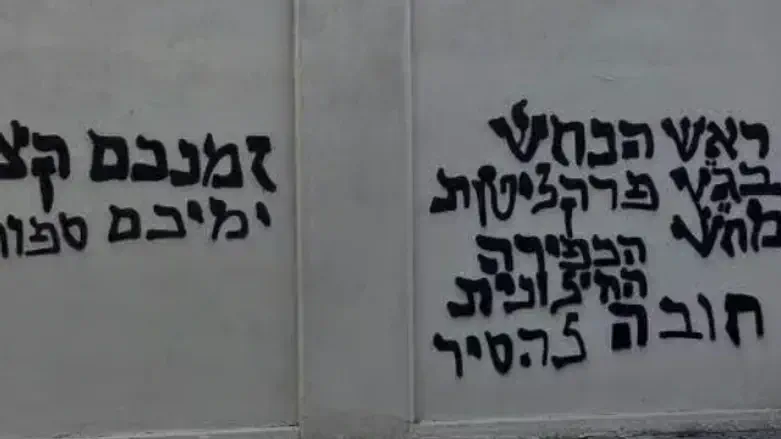 ראש הנחש
בג"ץ פרקליטות
מח"ש הכפירה
החיצונית
חובה להסיר
זמנכם קצ
ימיכם ספו